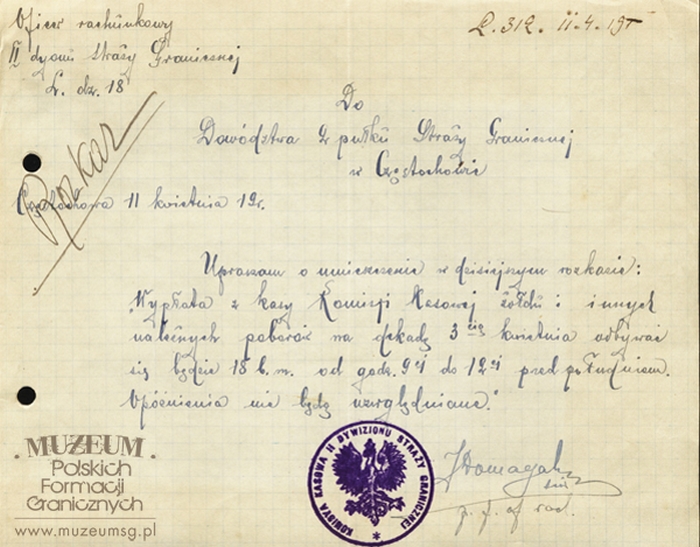 Oficer rachunkowy
II dyonu Straży Granicznej
L. dz. 18
L. 312. II. 4. 19
Rozkaz
Do
Dowództwa 2 pułku Straży Granicznej
w Częstochowie
Częstochowa 11 kwietnia 19r.
Upraszam o umieszczenie w dzisiejszym rozkazie:
"Wypłata z kasy Komisji Kasowej żołdu i innych
należnych poborów na dekadę 3cią kwietnia odbywać
się będzie 18 b.m. od godz. 9ej do 12ej przed południem.
Opóźnienia nie będą uwzględniane."
KOMISYA KASOWA II DYWIZIONU STRAŻY GRANICZNEJ
p. f. of rach.
MUZEUM
Polskich
Formacji
Granicznych
www.muzeumsg.pl